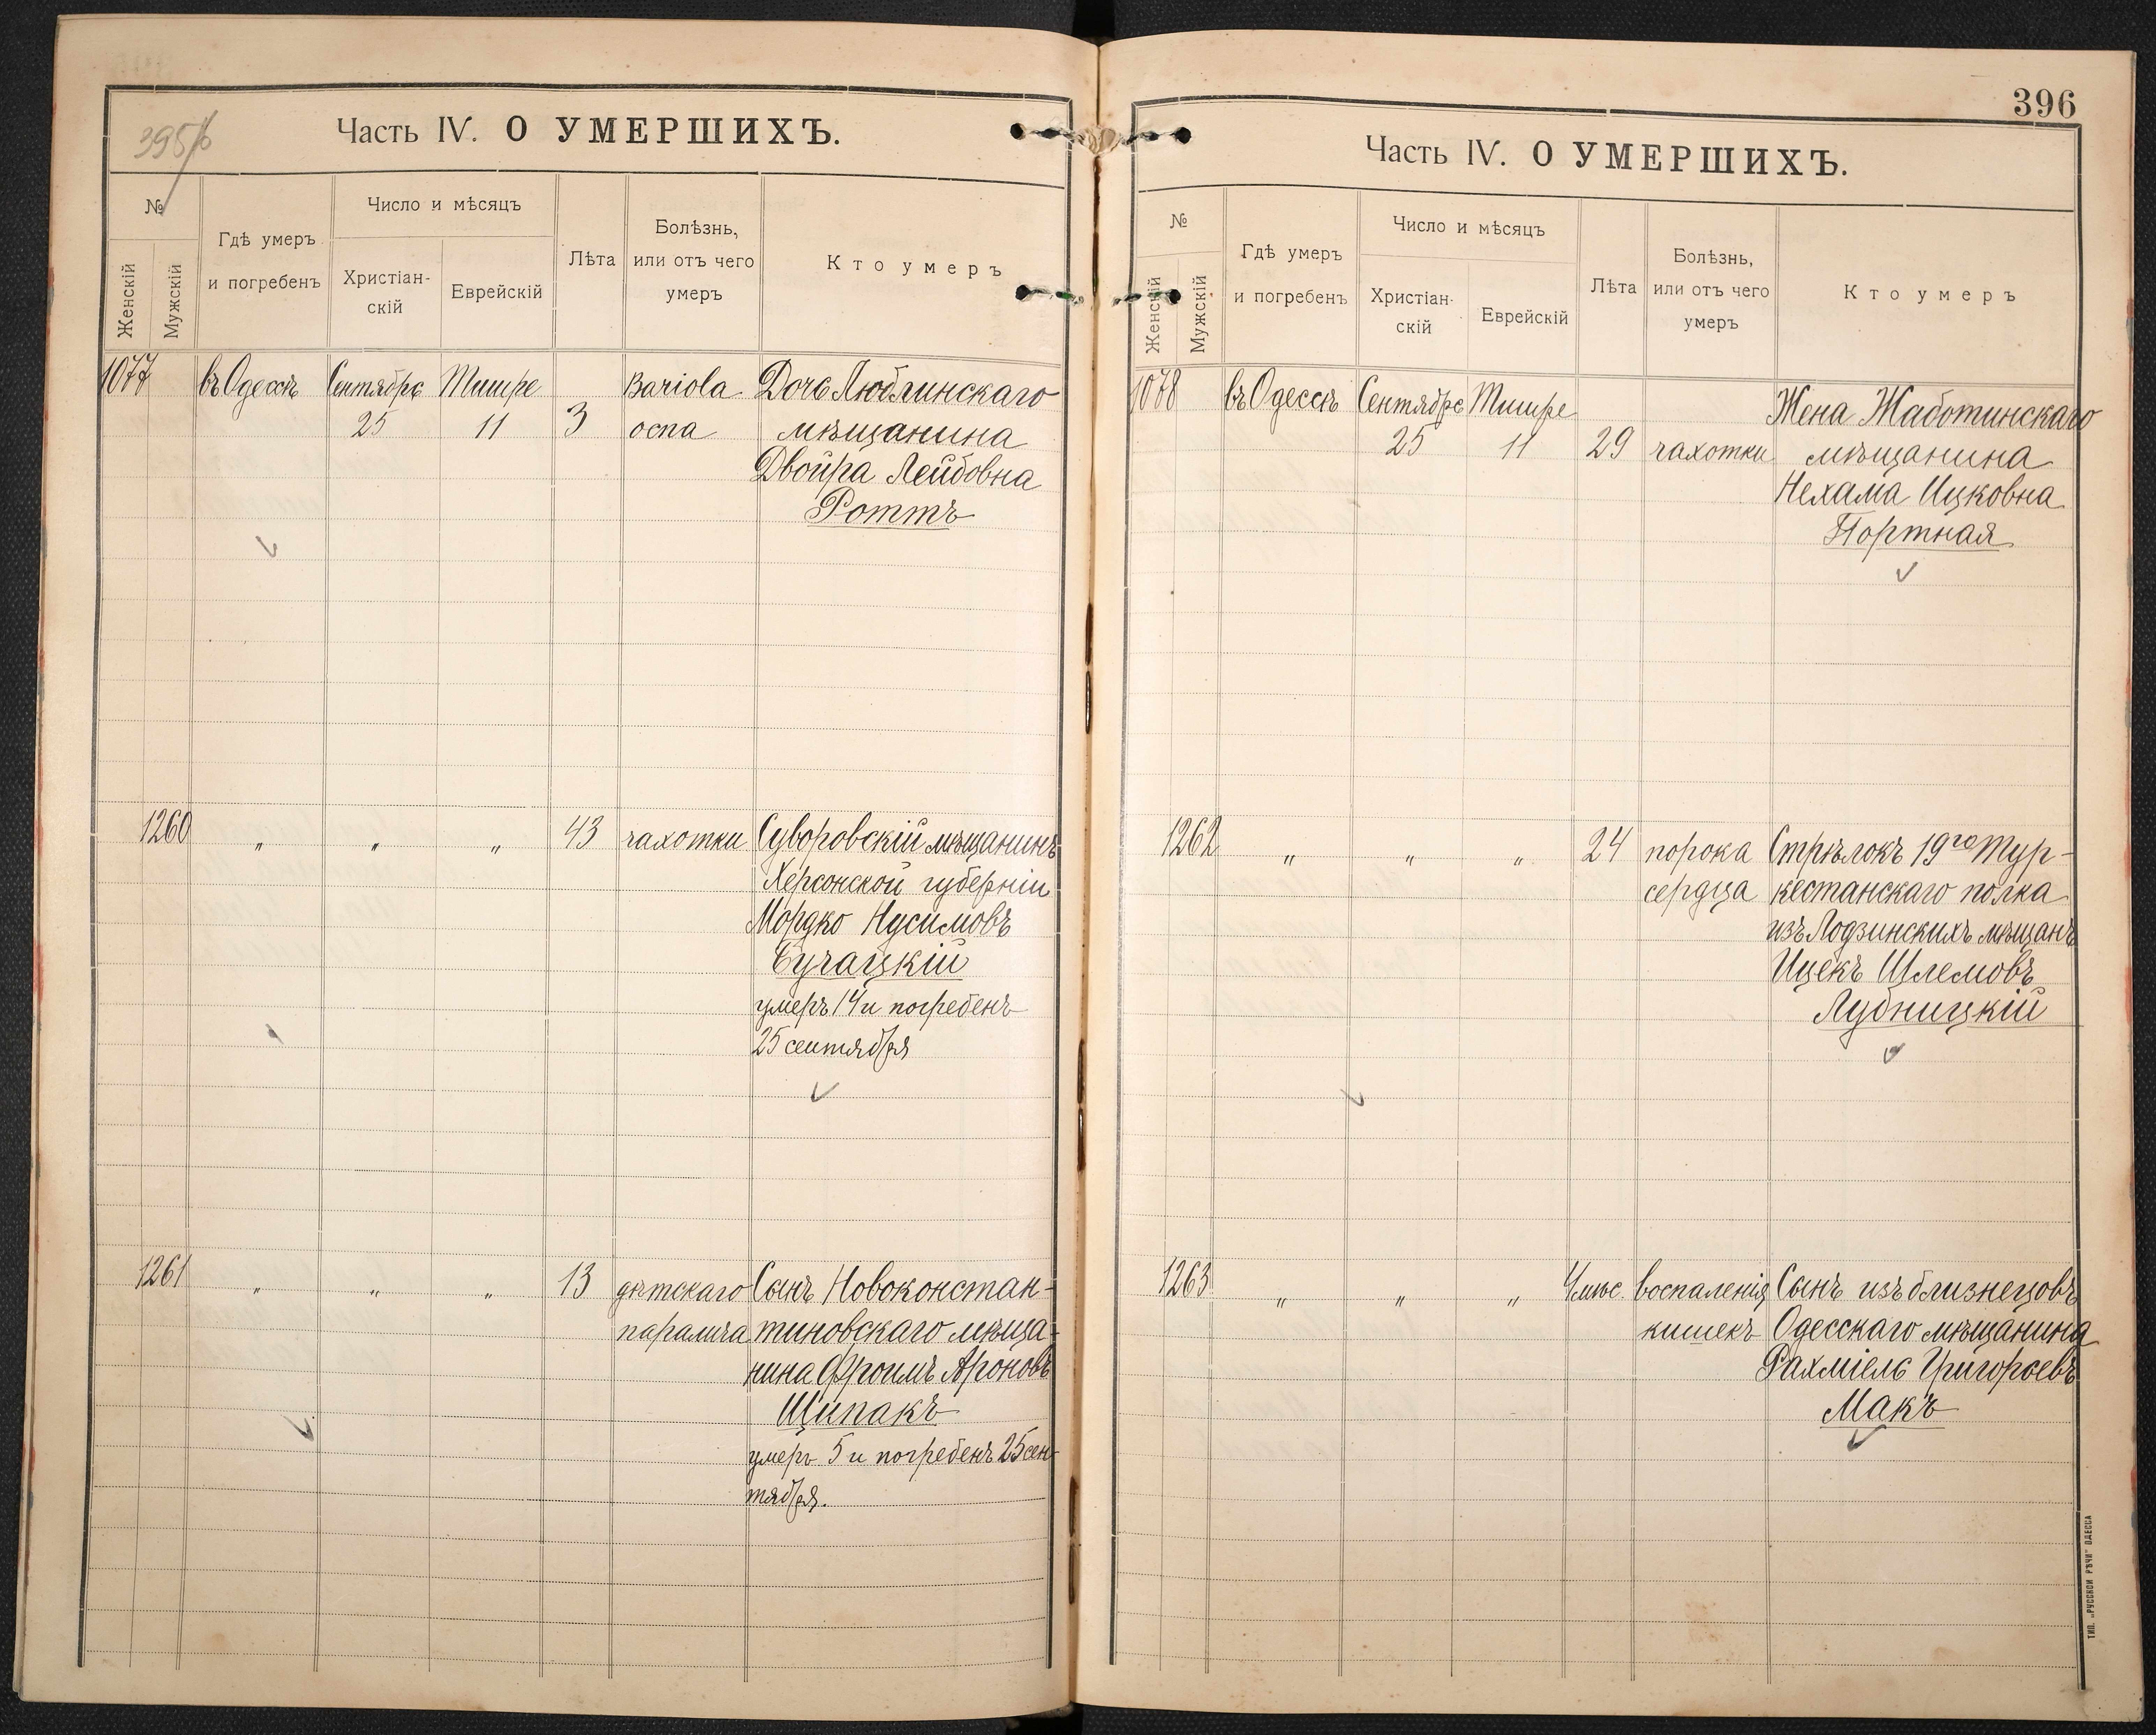 Часть IV. О УМЕРШИХЪ.
№
Женскій
Мужскій
Гдѣ умеръ
и погребенъ
Число и мѣсяцъ
Христіан-
скій
Еврейскій
Лѣта
Болѣзнь,
или отъ чего
умеръ
Кто умеръ
1077 въ Одессѣ Сентября Тишре Variola Дочь Люблинскаго
25 11 3 оспа мѣщанина
Двойра Лейбовна
Роттъ
1260 " " " 43 чахотки Суворовскій мѣщанинъ
Херсонской губерніи
Мордко Нусимовъ
Бучацкій
умеръ 14 и погребенъ
25 сентября
1261 " " " 13 дѣтскаго Сынъ Новоконстан-
паралича тиновскаго мѣща-
нина Фроимъ Ароновъ
Щипакъ
умеръ 5 и погребенъ 25 сен-
тября.
396
Часть IV. О УМЕРШИХЪ.
№
Женскій
Мужскій
Гдѣ умеръ
и погребенъ
Число и мѣсяцъ
Христіан-
скій
Еврейскій
Лѣта
Болѣзнь,
или отъ чего
умеръ
Кто умеръ
1078 въ Одессѣ Сентября Тишре Жена Жаботинскаго
25 11 29 чахотки мѣщанина
Нехама Ицковна
Портная
1262 " " " 24 порока Стрѣлокъ 19го Тур-
сердца кестанскаго полка
изъ Лодзинскихъ мѣщанъ
Ицекъ Шлемовъ
Лубницкій
1263 " " " 4 мѣс. воспаленія Сынъ изъ близнецовъ
кишекъ Одесскаго мѣщанина
Рахміель Григорьевъ
Макъ
ТИП. „РУССКОЙ РѢЧИ" ОДЕССА